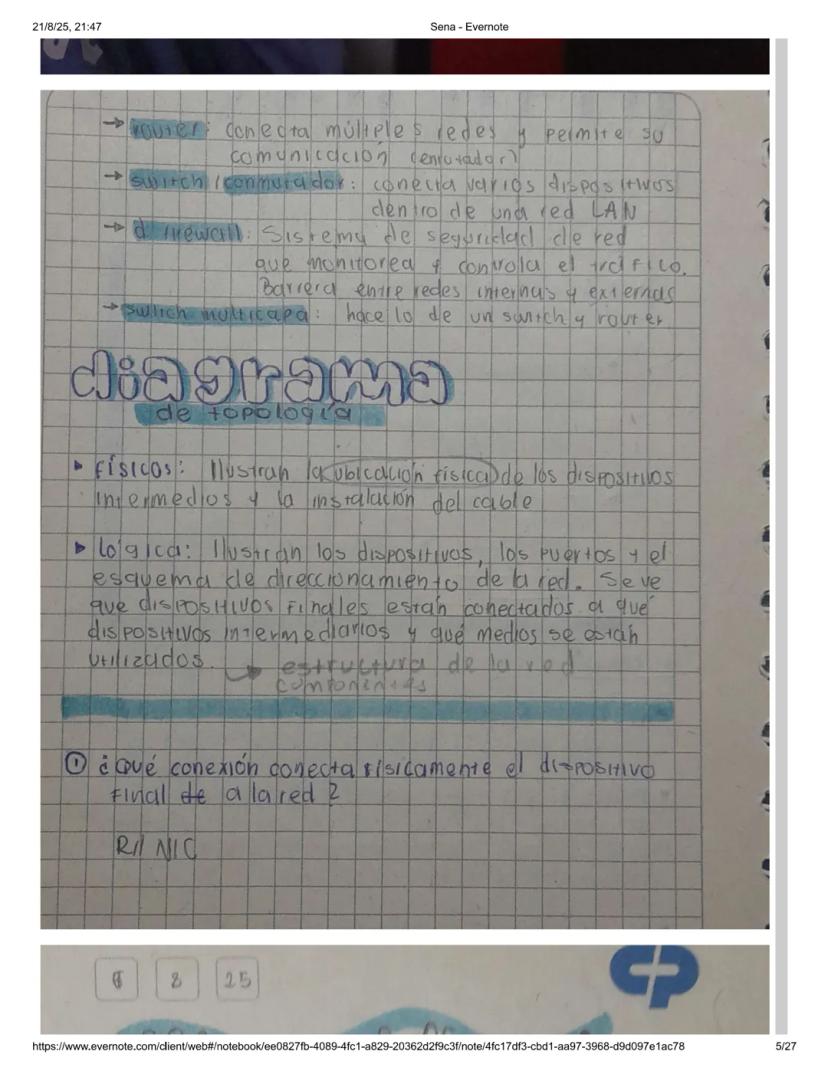 21/8/25, 21:47
Sena - Evernote
→ router: conecta múltiples redes y permite su
comunicación (enrutador)
→ switch / conmutador: conecta varios dispositivos
dentro de una red LAN
→ d firewall: Sistema de seguridad de red
que monitorea y controla el tráfico.
Barrera entre redes internas y externas
→ switch multicapa: hace lo de un switch y router
diagrama
de topología
▸ físicos: Ilustran la ubicación física de los dispositivos
intermedios y la instalación del cable
▸ lógica: Ilustran los dispositivos, los puertos y el
esquema de direccionamiento de la red. Se ve
que dispositivos finales están conectados a qué
dispositivos intermediarios y qué medios se están
utilizados. → estructura de la red
componentes
① ¿Qué conexión conecta físicamente el dispositivo
final de a la red?
R// NIC
6 8 25
https://www.evernote.com/client/web#/notebook/ee0827fb-4089-4fc1-a829-20362d2f9c3f/note/4fc17df3-cbd1-aa97-3968-d9d097e1ac78
5/27